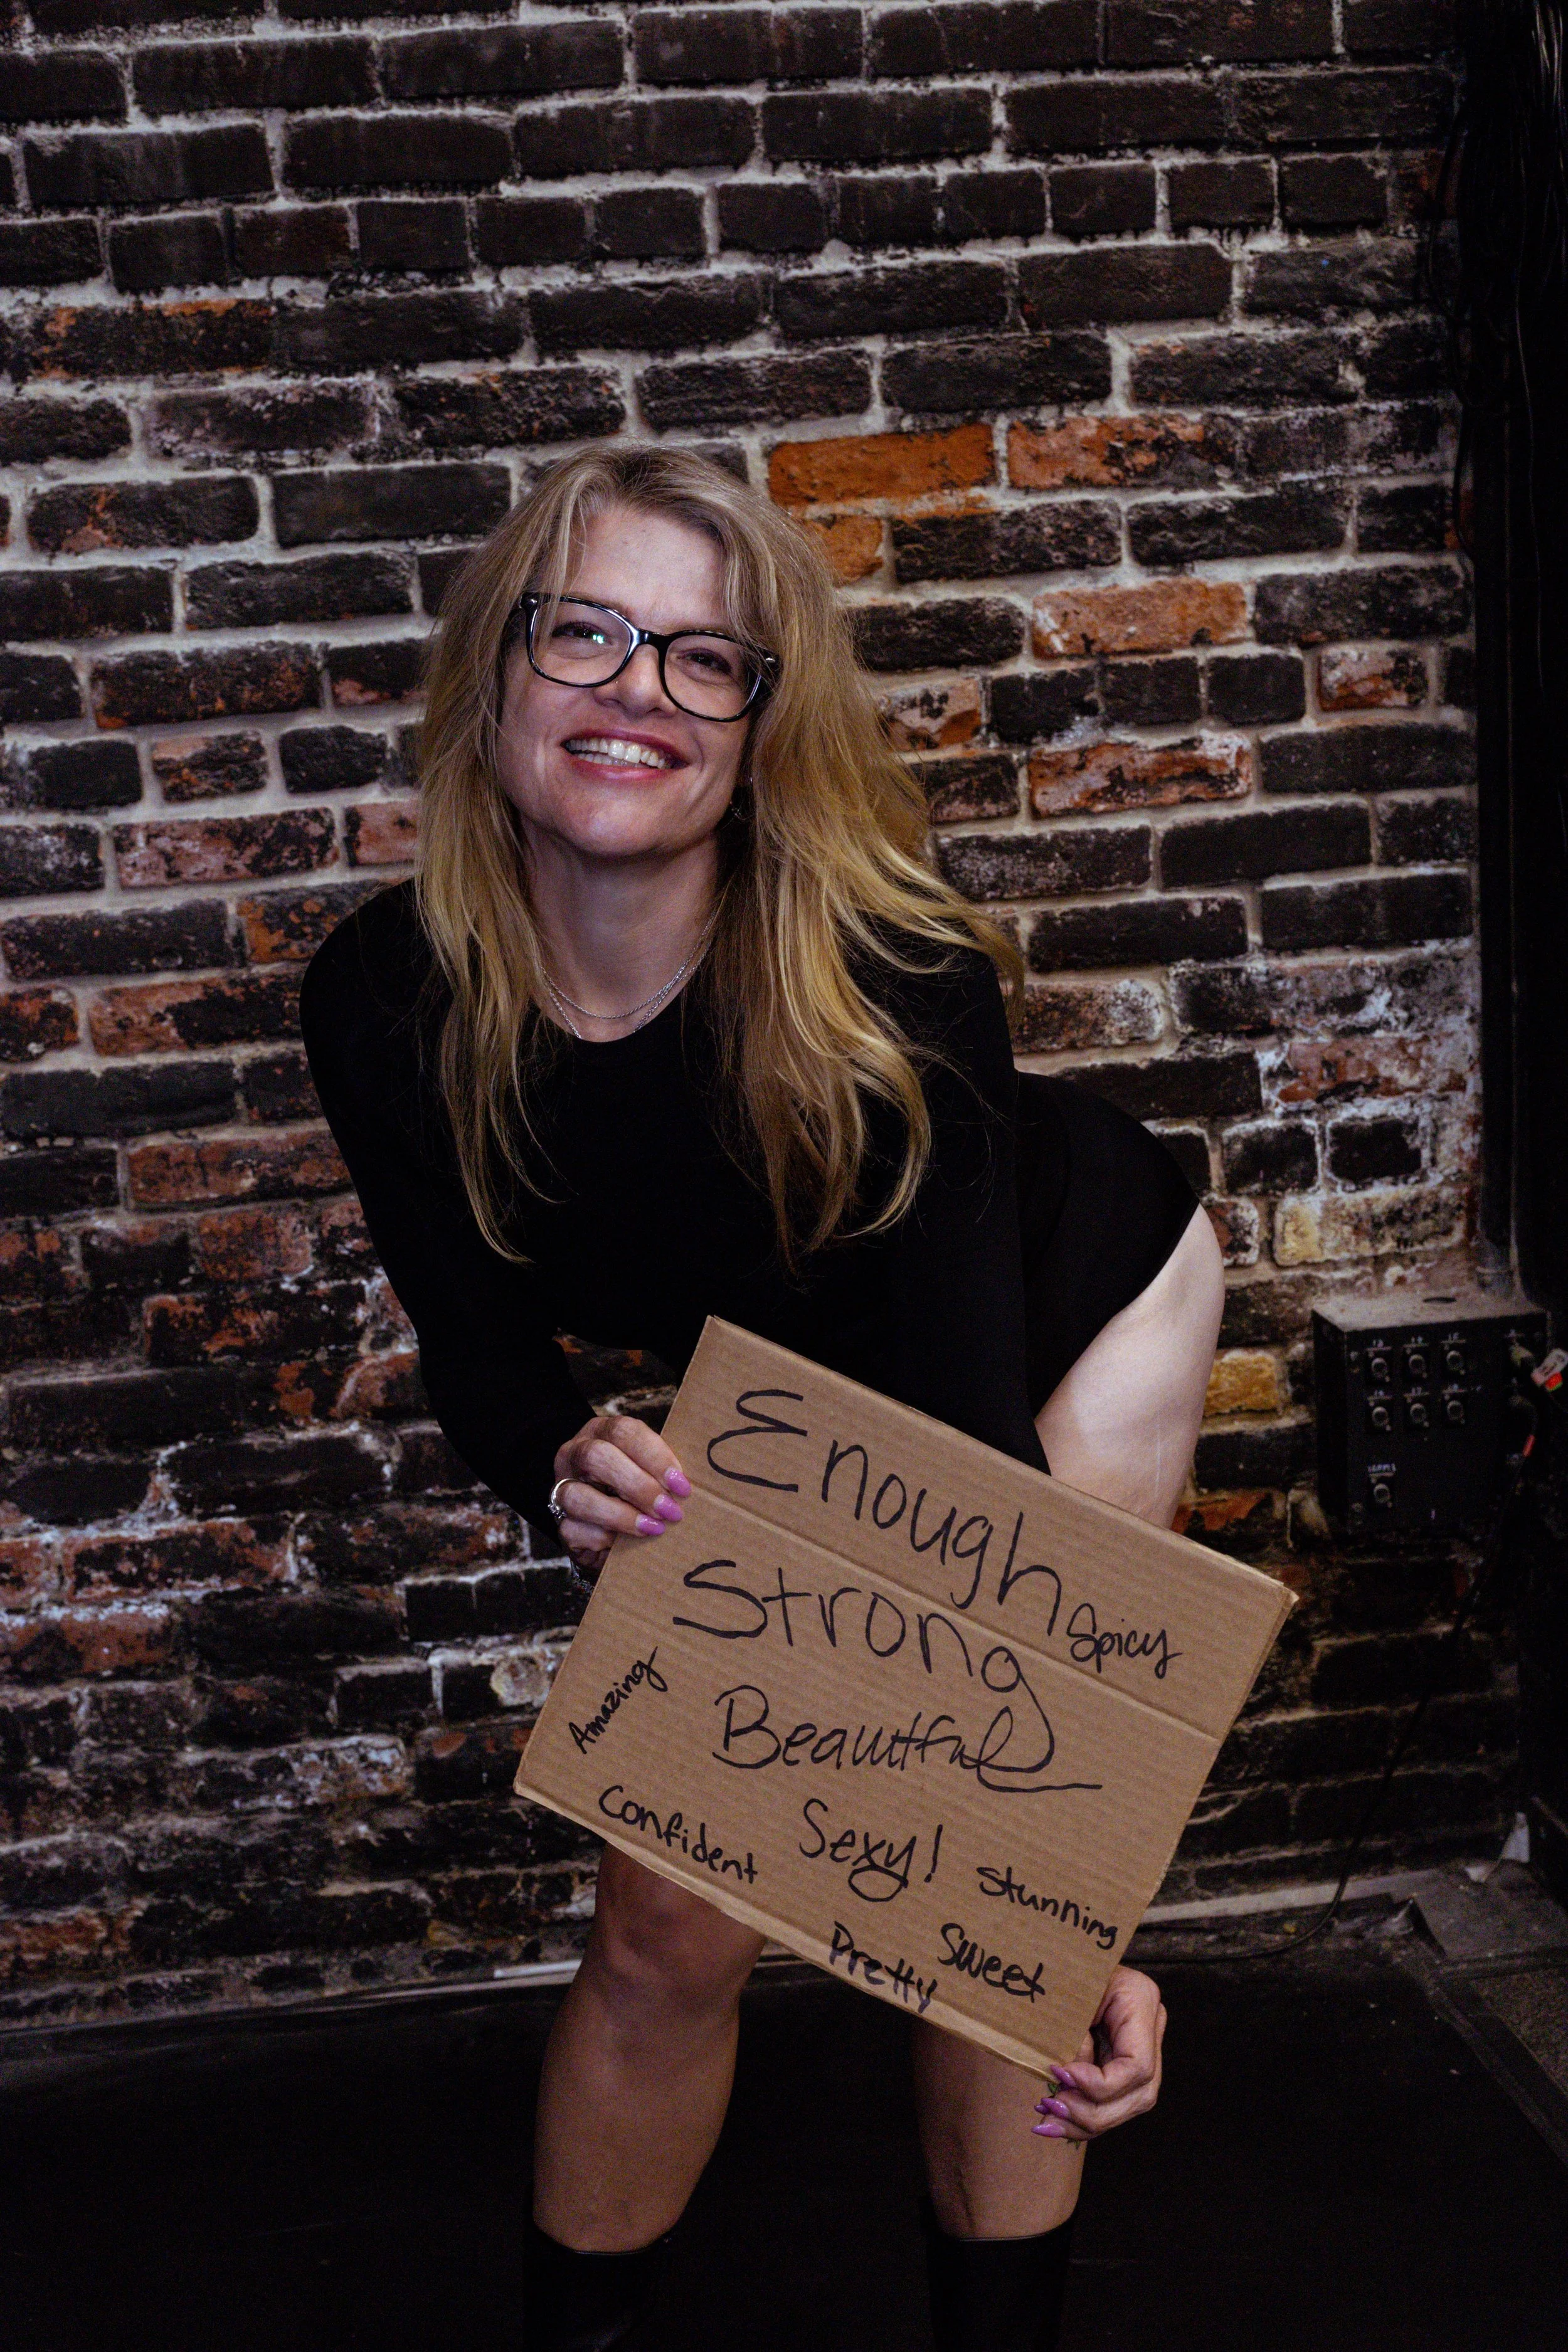 Enough
Spicy
Strong
Amazing
Beautful
Confident
Sexy!
Stunning
Sweet
Pretty